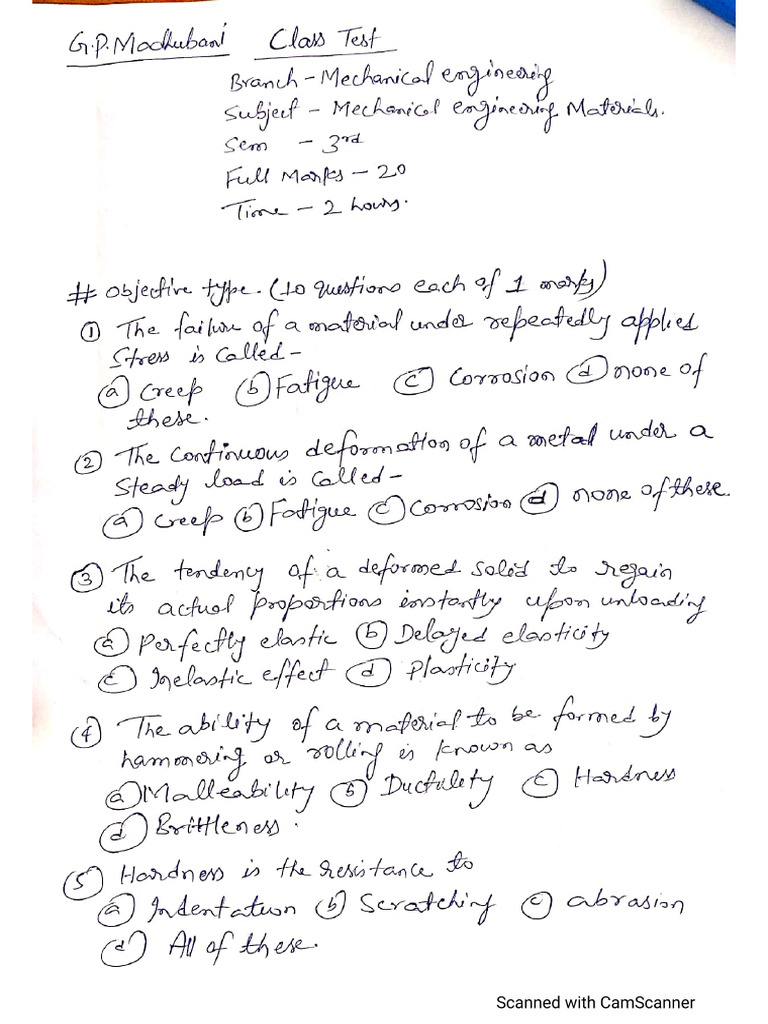 G.P. Madhubani Class Test
Branch - Mechanical engineering
Subject - Mechanical engineering Materials.
Sem - 3rd
Full Marks - 20
Time - 2 hours.
# Objective type. (10 questions each of 1 marks)
① The failure of a material under repeatedly applied
stress is called -
ⓐ Creep ⓑ Fatigue ⓒ Corrosion ⓓ none of
these.
② The continuous deformation of a metal under a
steady load is called -
ⓐ Creep ⓑ Fatigue ⓒ Corrosion ⓓ none of these.
③ The tendency of a deformed solid to regain
its actual proportions instantly upon unloading
ⓐ Perfectly elastic ⓑ Delayed elasticity
ⓒ Inelastic effect ⓓ Plasticity
④ The ability of a material to be formed by
hammering or rolling is known as
ⓐ Malleability ⓑ Ductulety ⓒ Hardness
ⓓ Brittleness.
⑤ Hardness is the resistance to
ⓐ Indentation ⓑ Scratching ⓒ abrasion
ⓓ All of these.
Scanned with CamScanner